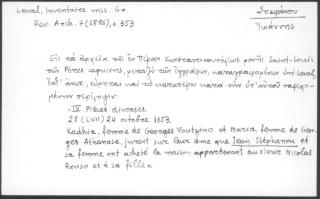 Laval, Inventaire mss. Gr.
Rev. Arch. 7 (1886), σ. 353
Στεφάνου
Ἰωάννης
Εἰς τὰ ἀρχεῖα τῆς ἐν Πέραν Κωνσταντινουπόλεως μονῆς Saint-Louis
τῶν Pères capucins, μεταξὺ τῶν ἐγγράφων, καταγραφομένων ὑπὸ Laval,
ἔνθ' ἄνωτ., εὕρηται καὶ τὸ κατωτέρω κατὰ τὴν ὑπ' αὐτοῦ παρεχο-
μένην περίληψιν:
"IV. Pièces diverses.
28 (LVII) 24 octobre 1653.
Kadhia, femme de Georges Voutymo et Maria, femme de Geor-
ges Athanase, jurent sur leur âme que Jean Stéphanou et
sa femme ont acheté la maison appartenant au sieur Nicolas
Renso et à sa fille".